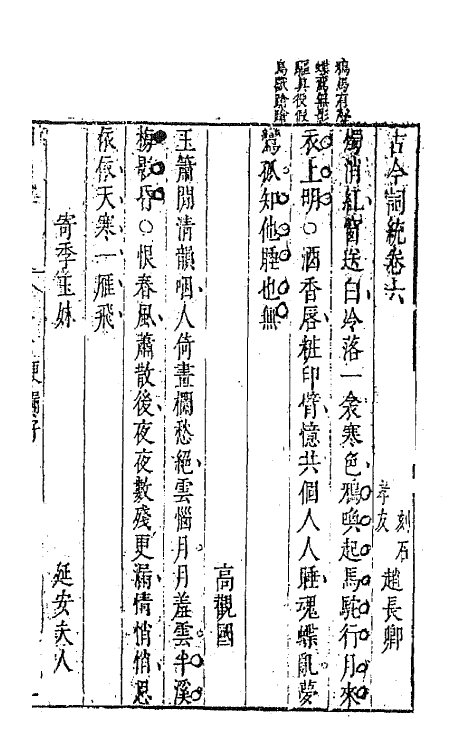 鴉馬有聲
蝶鸞無影
驅真役假
鳥獸蹌蹌
古今詞統卷六
刻石 趙長卿
孝友
燭消紅窗送白冷落一衾寒色鴉喚起馬駝行月來
衣上明○酒香唇粧印臂憶共個人人睡魂蝶亂夢
鸞孤知他睡也無
高觀國
玉簫閒清韻咽人倚畫欄愁絕雲惱月月羞雲半溪
梅影昏○恨春風蕭散後夜夜數殘更漏情悄悄思
依依天寒一雁飛
寄季玉妹 延安夫人